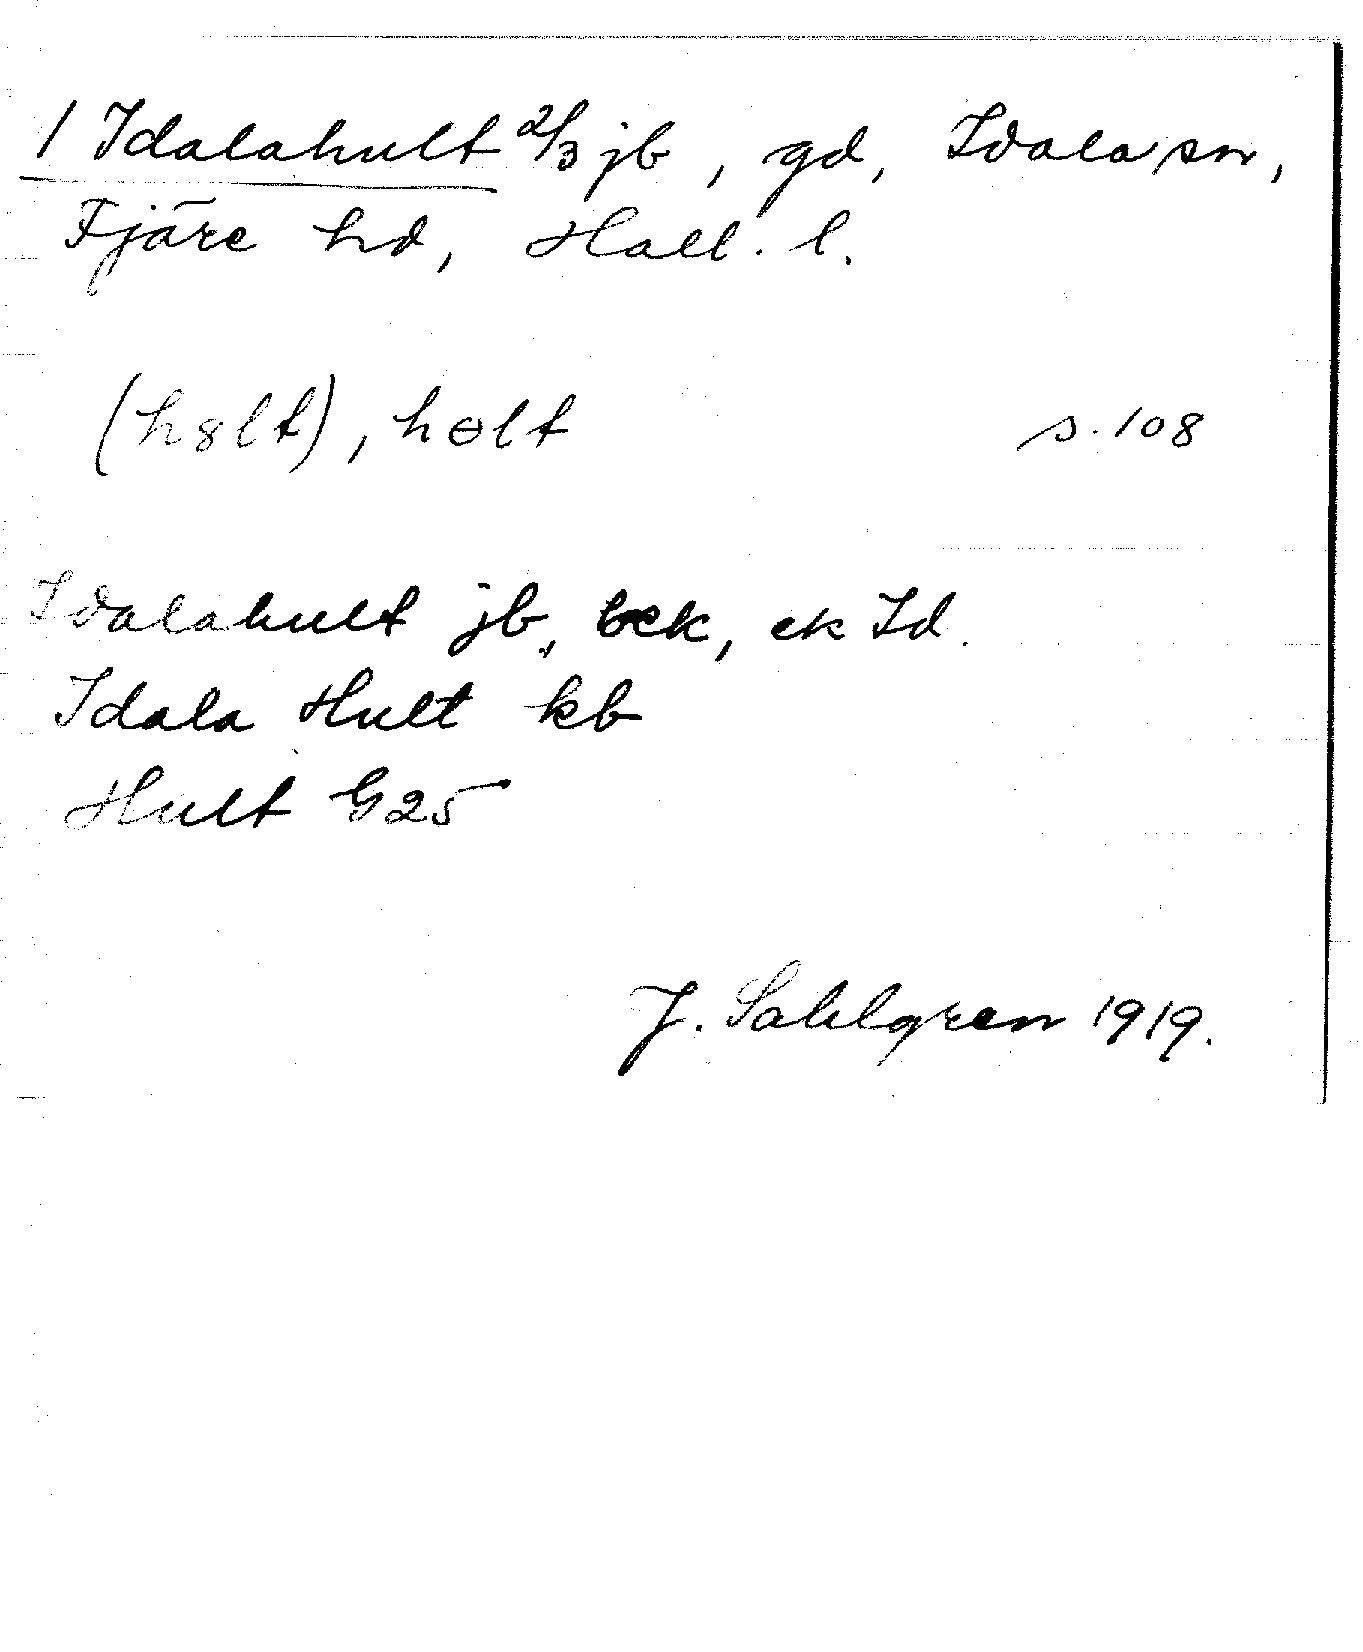 1 Idalahult 2/3 jb, gd, Idala sn,
Fjäre hd, Hall. l.
(h8lt), hɵlt s. 108
Idalahult jb, bek, ek Id.
Idala Hult kb
Hult G25
J. Sahlgren 1919.